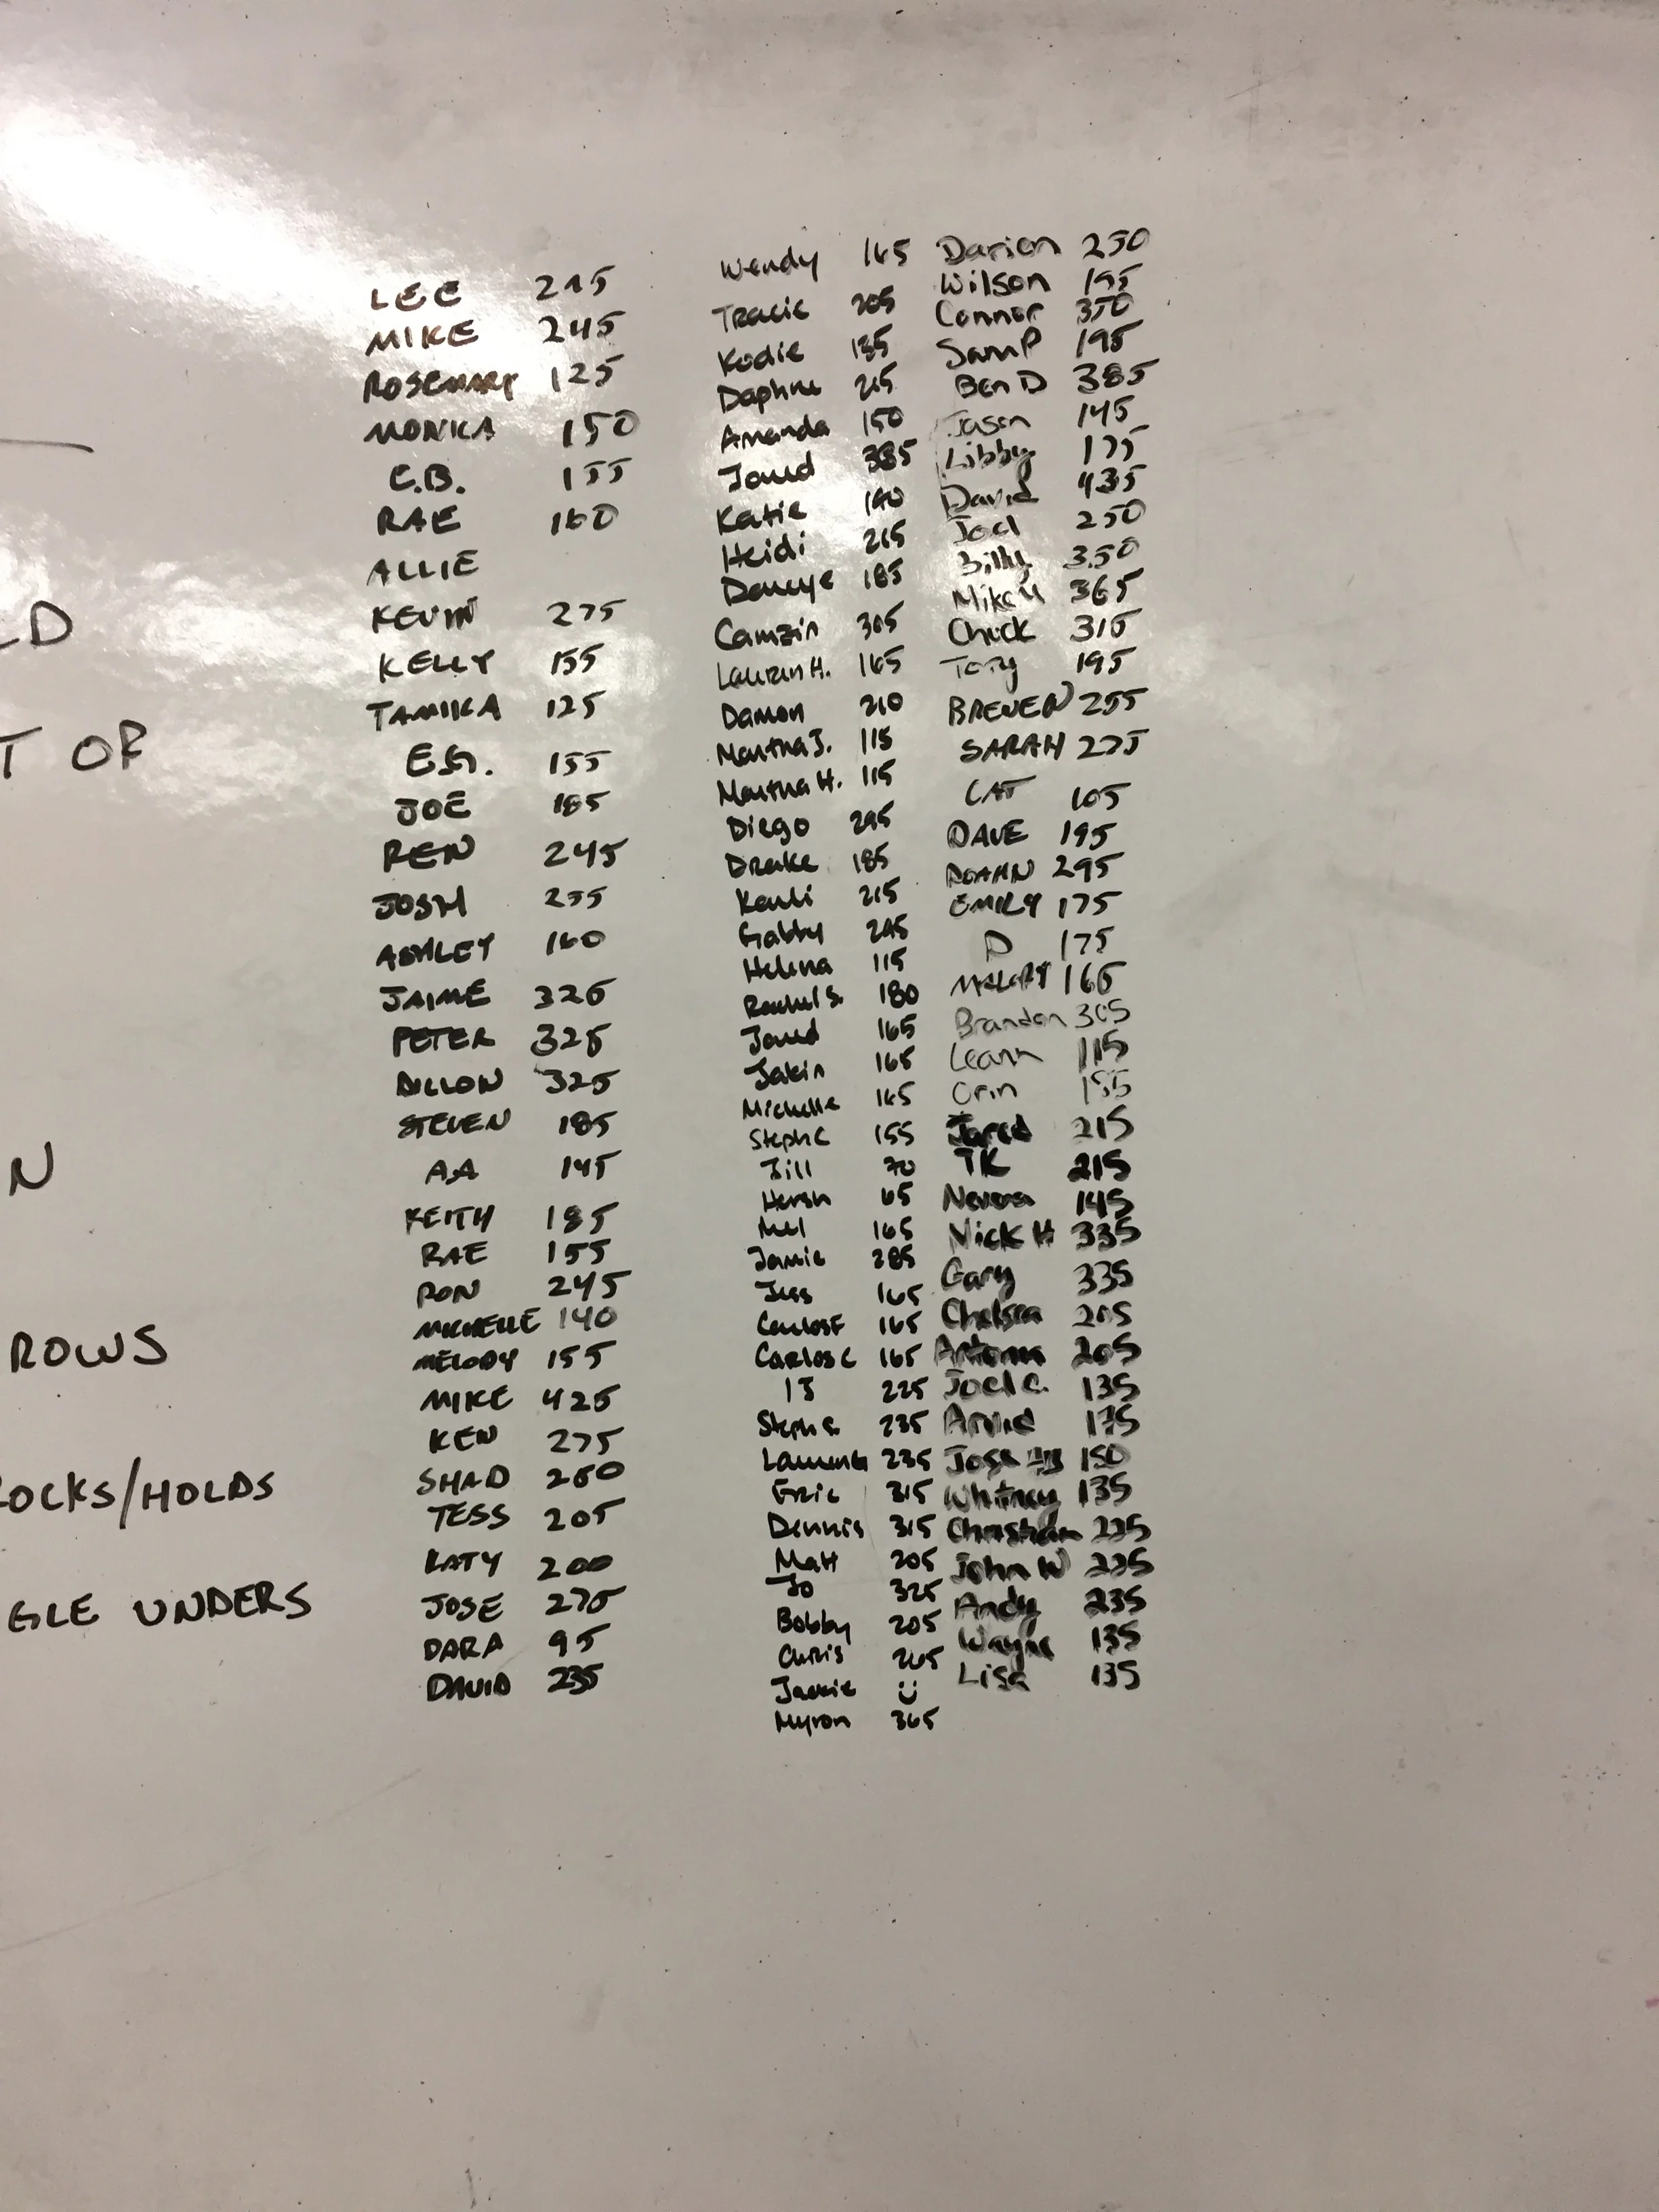 LD
T OF
N
ROWS
OCKS/HOLDS
GLE UNDERS
LEE 215
MIKE 245
ROSEMARY 125
MONKA 150
C.B. 155
RAE 160
ALLIE
KEVIN 275
KELLY 155
TAMIKA 125
E.G. 155
JOE 185
REN 245
JOSH 255
ASHLEY 160
JAIME 325
PETER 325
DILLON 325
STEVEN 185
AA 145
KEITH 185
RAE 155
RON 245
MICHELLE 140
MELODY 155
MIKE 425
KEN 275
SHAD 260
TESS 205
KATY 200
JOSE 275
DARA 95
DAVID 235
Wendy 165
Tracie 205
Kodie 185
Daphne 215
Amanda 150
Jared 385
Katie 140
Heidi 215
Darcye 185
Camzin 305
Lauren H. 165
Damon 210
Martha J. 115
Martha H. 115
Diego 295
Drake 185
Karli 215
Gabby 245
Helena 115
Rachel S. 180
Jared 165
Jakin 165
Michelle 165
Steph C 155
Jill 70
Hersh 65
Mel 165
Jamie 285
Jess 165
Carlos F 165
Carlos C 165
IJ 225
Steph S. 235
Lauren G 235
Eric 315
Dennis 315
Matt 205
Jo 325
Bobby 205
Chris 265
Jackie
Myron 365
Darion 250
Wilson 195
Connor 350
Sam P 195
Ben D 385
Jason 145
Libby 175
David 435
Joel 250
Billy 350
Mike 365
Chuck 315
Tory 195
BREVEN 255
SARAH 275
CAT 105
DAVE 195
ROAHN 295
EMILY 175
D 175
MALORY 165
Brandon 305
Leann 115
Orin 155
Jared 215
TK 215
Nevena 145
Nick H 335
Gary 335
Chelsea 205
Antonis 205
Joel C. 135
Arvid 175
Jose 150
Whitney 135
Christian 225
John W 225
Andy 235
Wayne 135
Lisa 135